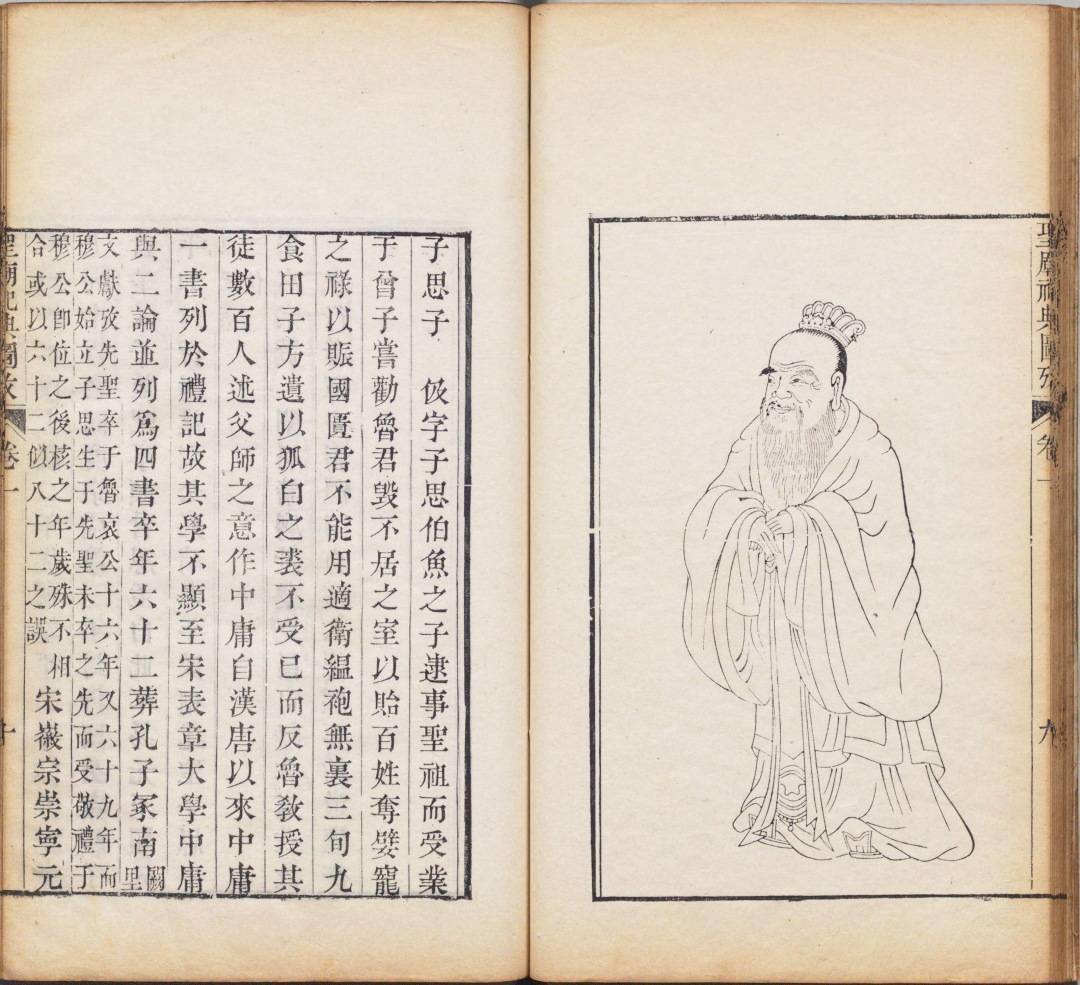 聖廟祀典圖攷
卷一
九
子思子 伋字子思伯魚之子逮事聖祖而受業
于曾子嘗勸魯君毀不居之室以貽百姓奪嬖寵
之祿以賑國匱君不能用適衛縕袍無裏三旬九
食田子方遺以狐白之裘不受已而反魯敎授其
徒數百人述父師之意作中庸自漢唐以來中庸
一書列於禮記故其學不顯至宋表章大學中庸
與二論並列爲四書卒年六十二葬孔子冢南闕里
文獻攷先聖卒于魯哀公十六年又六十九年而
穆公始立子思生于先聖未卒之先而受敬禮于
穆公卽位之後核之年歲殊不相
合或以六十二似八十二之誤
宋徽宗崇寧元
聖廟祀典圖攷
卷一
十